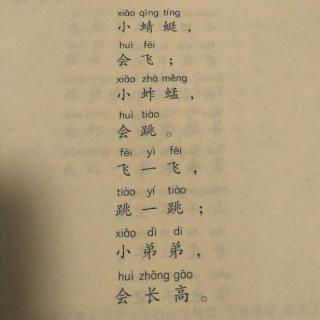 xiǎo qīng tíng
小蜻蜓，
huì fēi
会飞；
xiǎo zhà měng
小蚱蜢，
huì tiào
会跳。
fēi yì fēi
飞一飞，
tiào yí tiào
跳一跳；
xiǎo dì di
小弟弟，
huì zhǎng gāo
会长高。